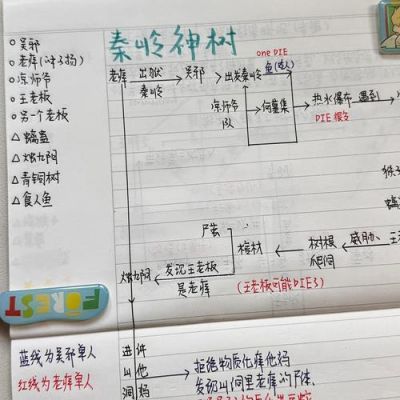 秦岭神树
吴邪
老痒(解子扬)
凉师爷
王老板
另一个老板
螭蛊
烛九阴
青铜树
食人鱼
老痒 出狱 吴邪 出发秦岭 鱼(咬人)
秦岭
one DIE
凉师爷
队
热水瀑布 遇到
尸蛊
棺材
树根
威胁、王
烛九阴
发现王老板
是老痒
(王老板可能DIE了)
FOREST
蓝线为吴邪单人
红线为老痒单人
进 许
山 他
洞 妈
拒绝物质化痒他妈
发现山洞里老痒的尸体